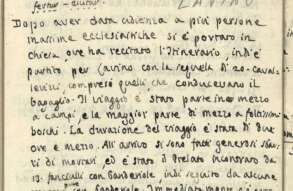 fertur - dicitur.
LAVINO
Dopo aver data udienza a più persone
massime ecclesiastiche si è portato in
chiesa ove ha recitato l'Itinerario, indi è
partito per Lavino con la seguela di 20 - caval-
leviizi, compresi quelli che conducevano il
bagaglio. Il viaggio è stato parte in mezzo
a campi e la maggior parte di mezzo a foltissimi
boschi. La durazione del viaggio è stata di due
ore e mezzo. All'arrivo si sono fatti generosi sbar-
ri di mortari, ed è stato il Prelato incontrato da
13. fanciulli con banderiole indi seguito da alcune
Immediatamente